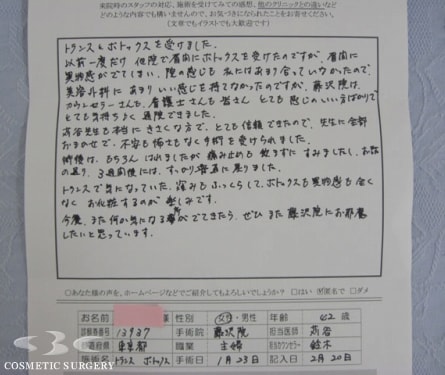 来院時のスタッフの対応、施術を受けてみての感想、他のクリニックとの違いなど
どのような内容でも構いませんので、お気づきになられたことをお寄せください。
(文章でもイラストでも大歓迎です)
トランスとボトックスを受けました。
以前一度だけ 他院で眉間にボトックスを受けたのですが、眉間に
異物感がでてしまい、院の感じも 私にはあまり合っていなかったので、
美容外科に あまりいい感じを持てなかったのですが、藤沢院は、
カウンセラーさんも、看護士さんも皆さん とても感じのいい方ばかりで
とても気持ちよく通院できました。
高谷先生も本当に きさくな方で、とても信頼できたので、先生に全部
おまかせで、不安も怖さもなく手術を受けられました。
術後は、もちろん はれましたが 痛み止めも 飲まずに すみましたし、お話
の通り、3週間後には、すっかり普通に戻りました。
トランスで気になっていた、凹みもふっくらして、ボトックスも異物感も全く
なく お化粧するのが楽しみです。
今度、また何か気になる事がでてきたら、ぜひ また 藤沢院にお邪魔
したいと思っています。
○あなた様の声を、ホームページなどでご紹介してもよろしいでしょうか? □はい ☑匿名で □ダメ
お名前 様 性別 女性・男性 年齢 42歳
診察券番号 13937 手術院 藤沢院 担当医師 高谷
都道府県 東京都 職業 主婦 担当カウンセラー 鈴木
施術名 トランス ボトックス 手術日 1月23日 記入日 2月20日
SBC
COSMETIC SURGERY